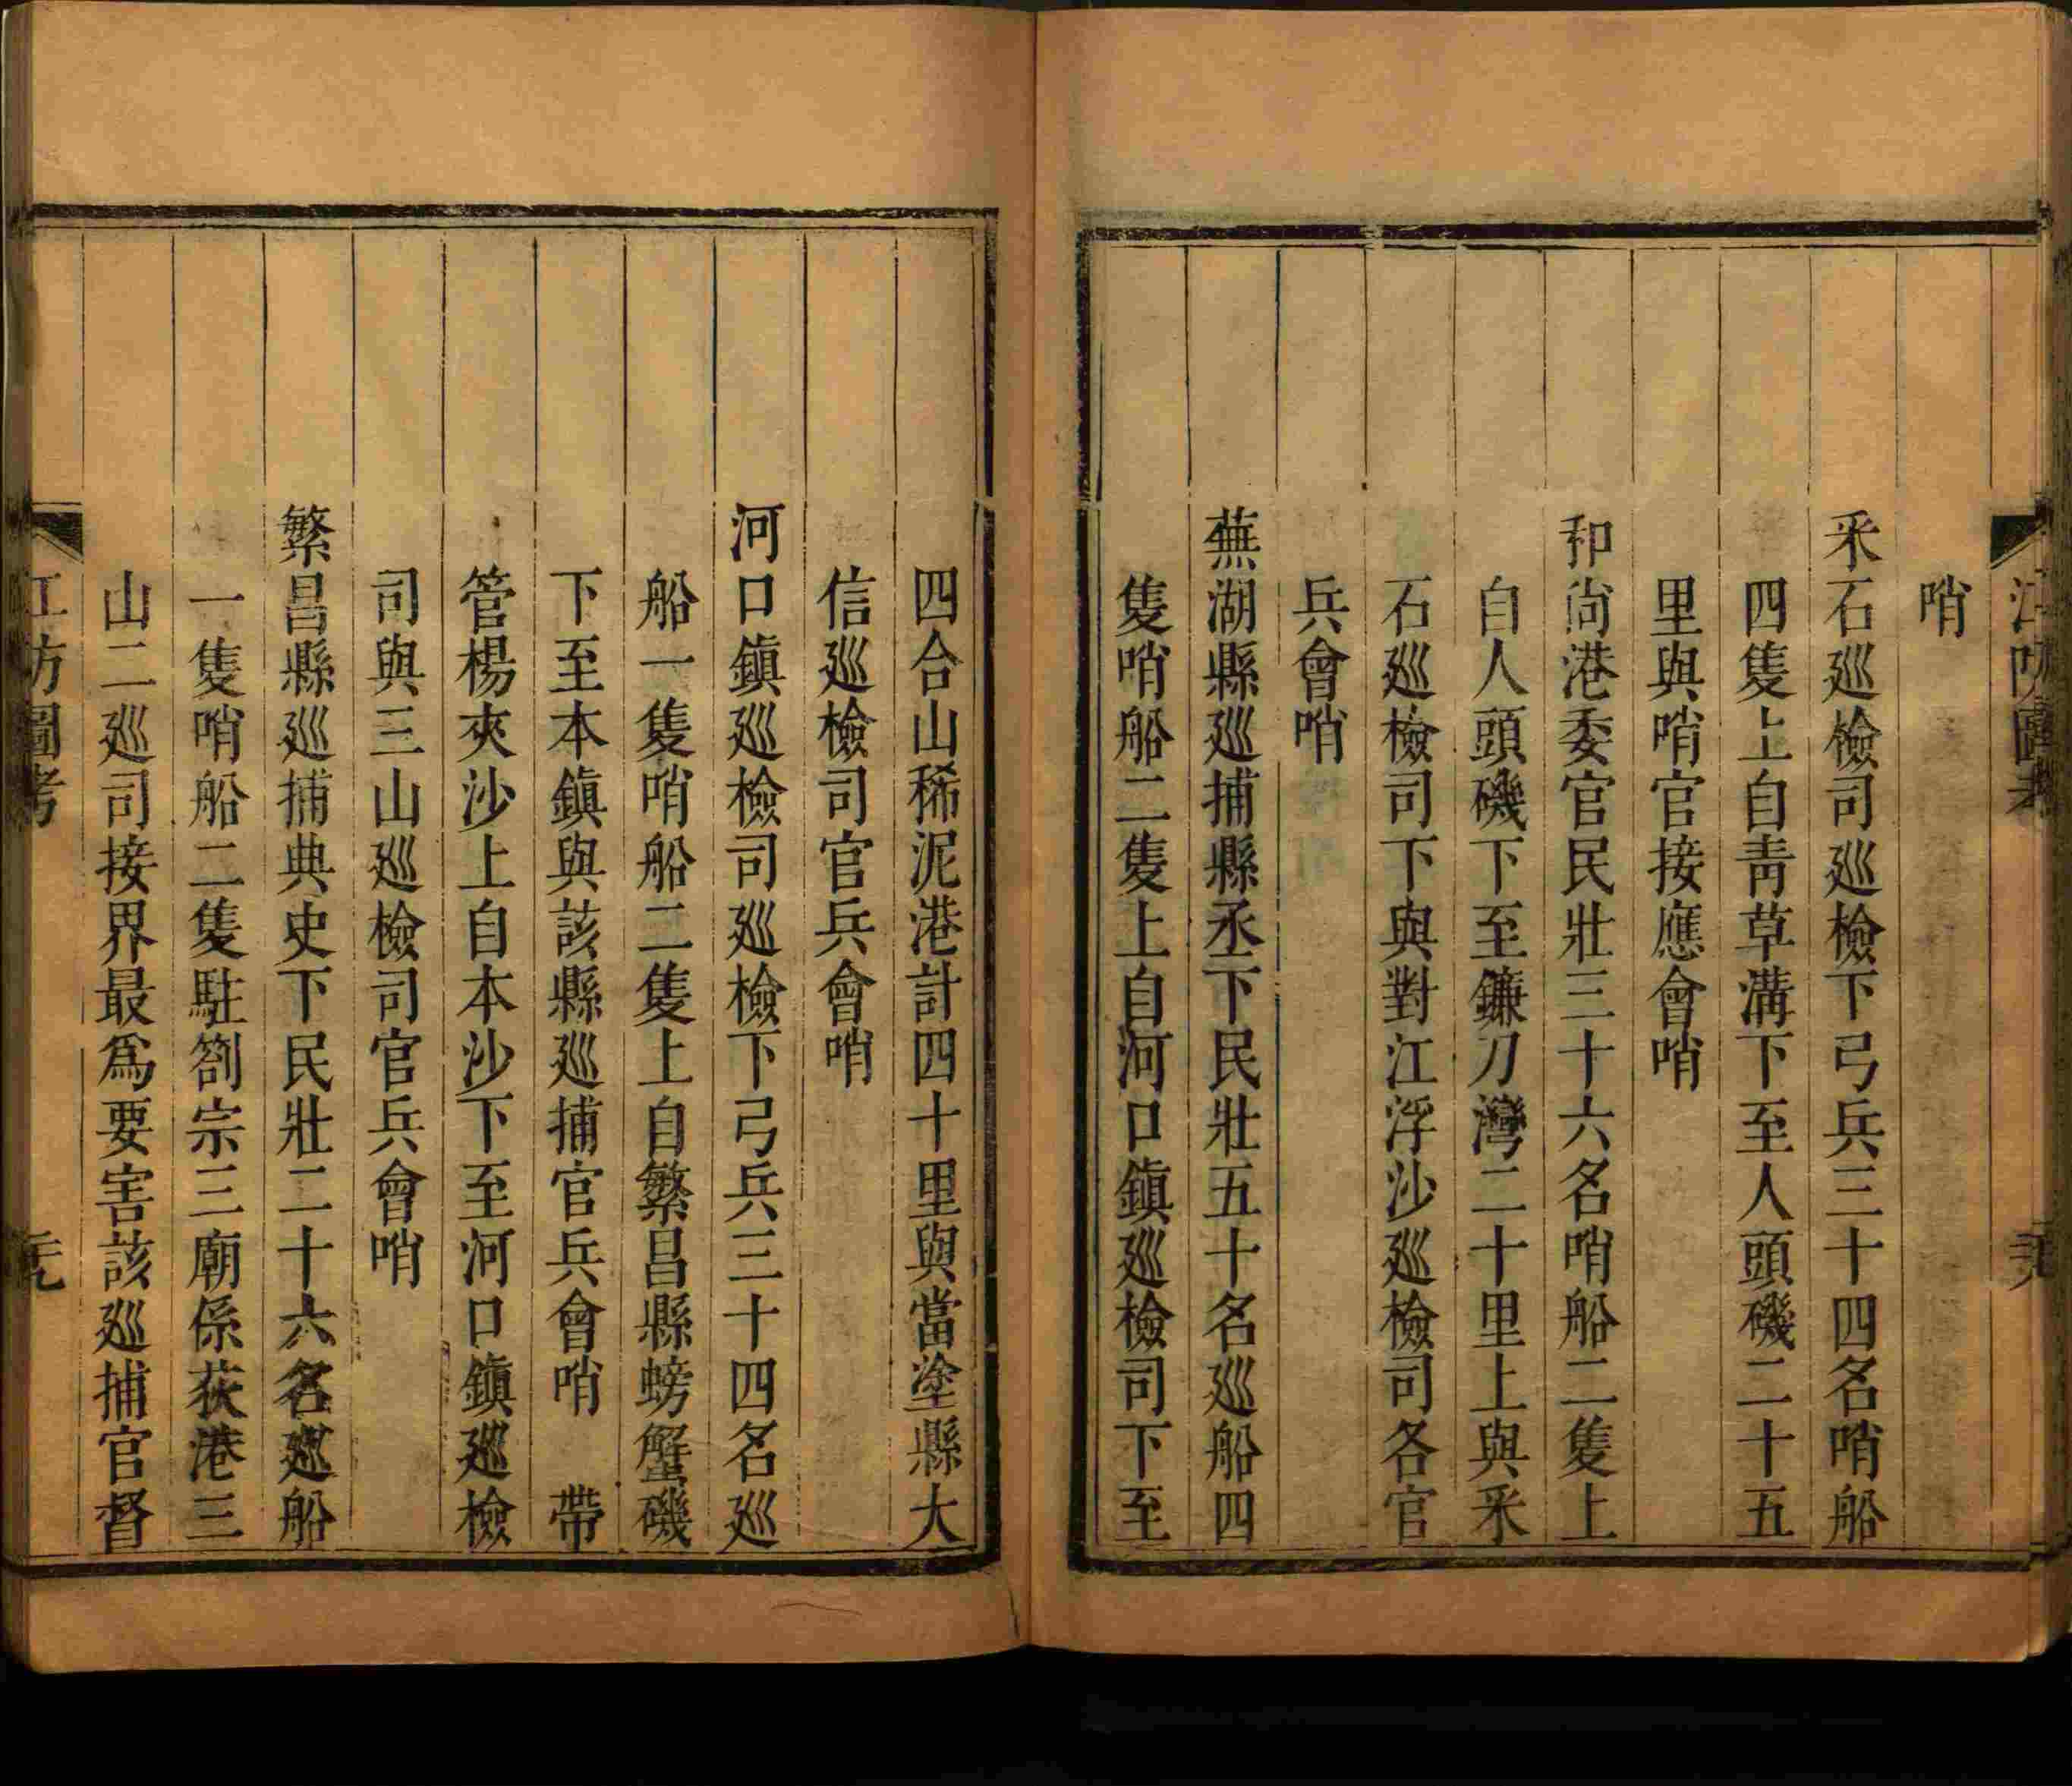 江防圖考
哨
釆石廵檢司廵檢下弓兵三十四名哨船
四隻上自靑草溝下至人頭磯二十五
里與哨官接應會哨
和尚港委官民壯三十六名哨船二隻上
自人頭磯下至鐮刀灣二十里上與釆
石廵檢司下與對江浮沙廵檢司各官
兵會哨
蕪湖縣廵捕縣丞下民壯五十名廵船四
隻哨船二隻上自河口鎭廵檢司下至
四合山稀泥港計四十里與當塗縣大
信廵檢司官兵會哨
河口鎭廵檢司廵檢下弓兵三十四名廵
船一隻哨船二隻上自繁昌縣螃蟹磯
下至本鎭與該縣廵捕官兵會哨　帶
管楊夾沙上自本沙下至河口鎭廵檢
司與三山廵檢司官兵會哨
繁昌縣廵捕典史下民壯二十六名廵船
一隻哨船二隻駐劄宗三廟係荻港三
山二廵司接界最爲要害該廵捕官督
江防圖考